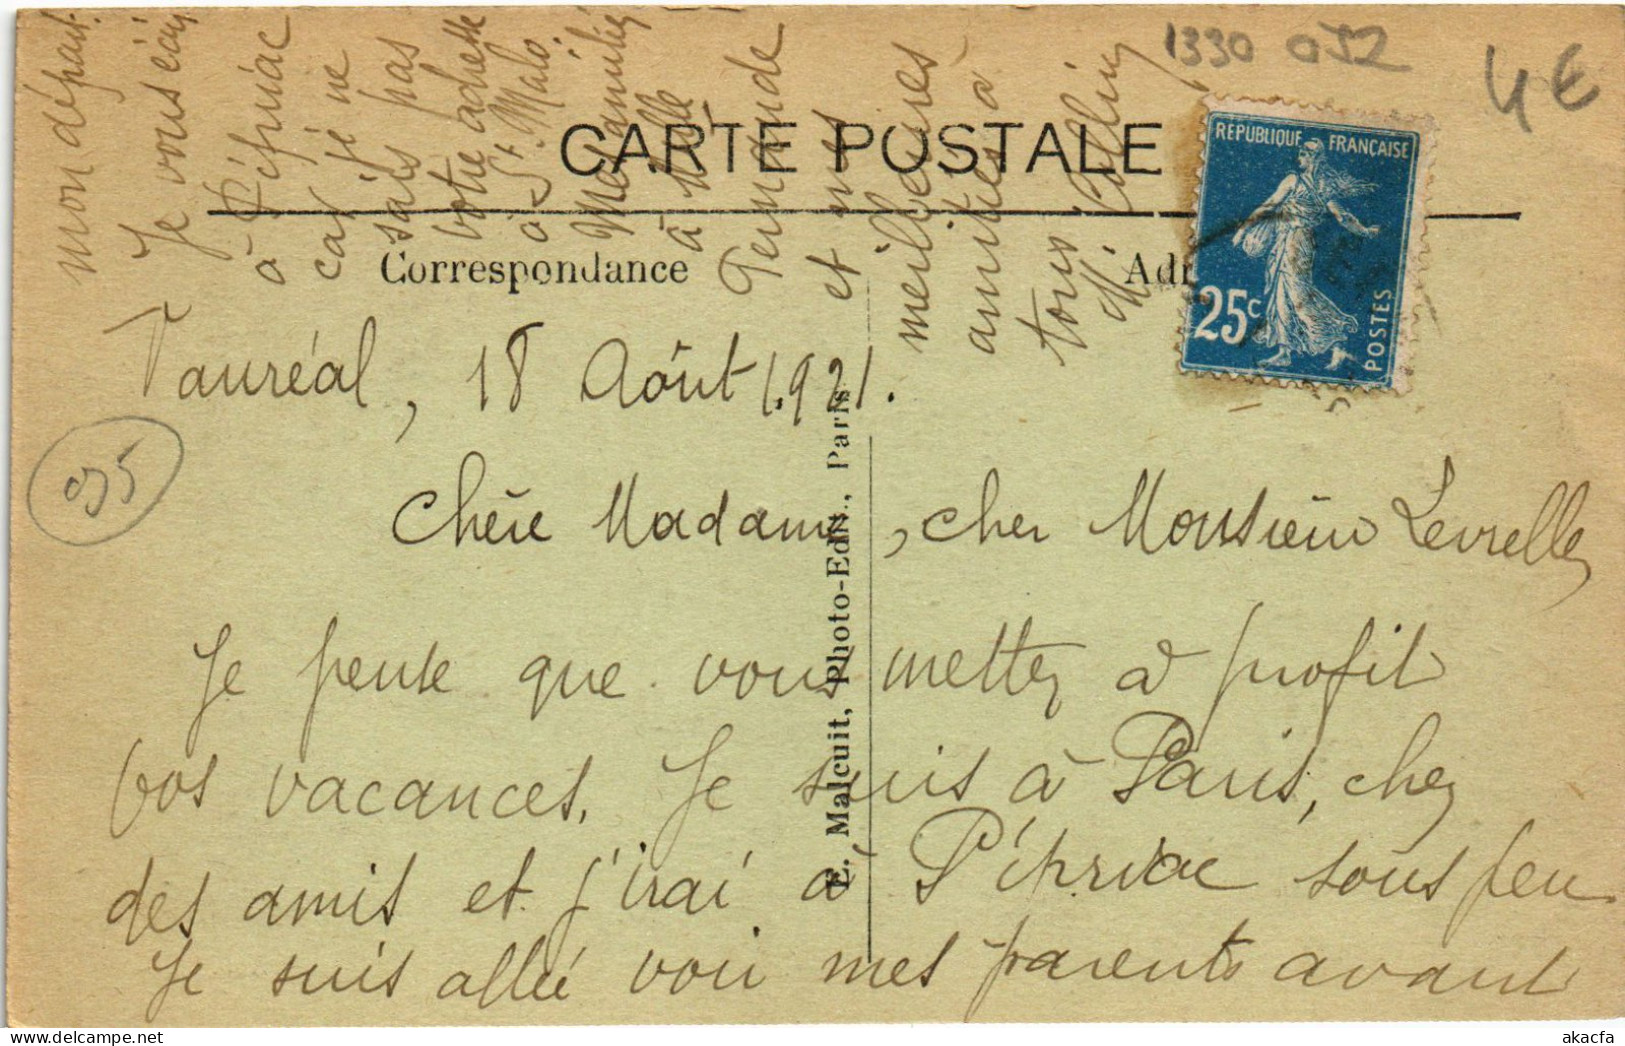 1330 052
4€
CARTE POSTALE
RÉPUBLIQUE FRANÇAISE
25c
POSTES
Correspondance
Adr
E. Malcuit, Photo-Edit., Paris
095
Vauréal, 18 Août 1921.
Chère Madame, cher Monsieur Levrelle,
Je pense que vous mettez à profit
vos vacances. Je suis à Paris, chez
des amis et j'irai à Pépriac sous peu
Je suis allée voir mes parents avant
mon départ.
Je vous écris
à Pépriac
car je ne
sais pas
votre adresse
à St. Malo.
Mes amitiés
à Mlle
Fernande
et mes
meilleures
amitiés à
tous
M. Collin
akacfa